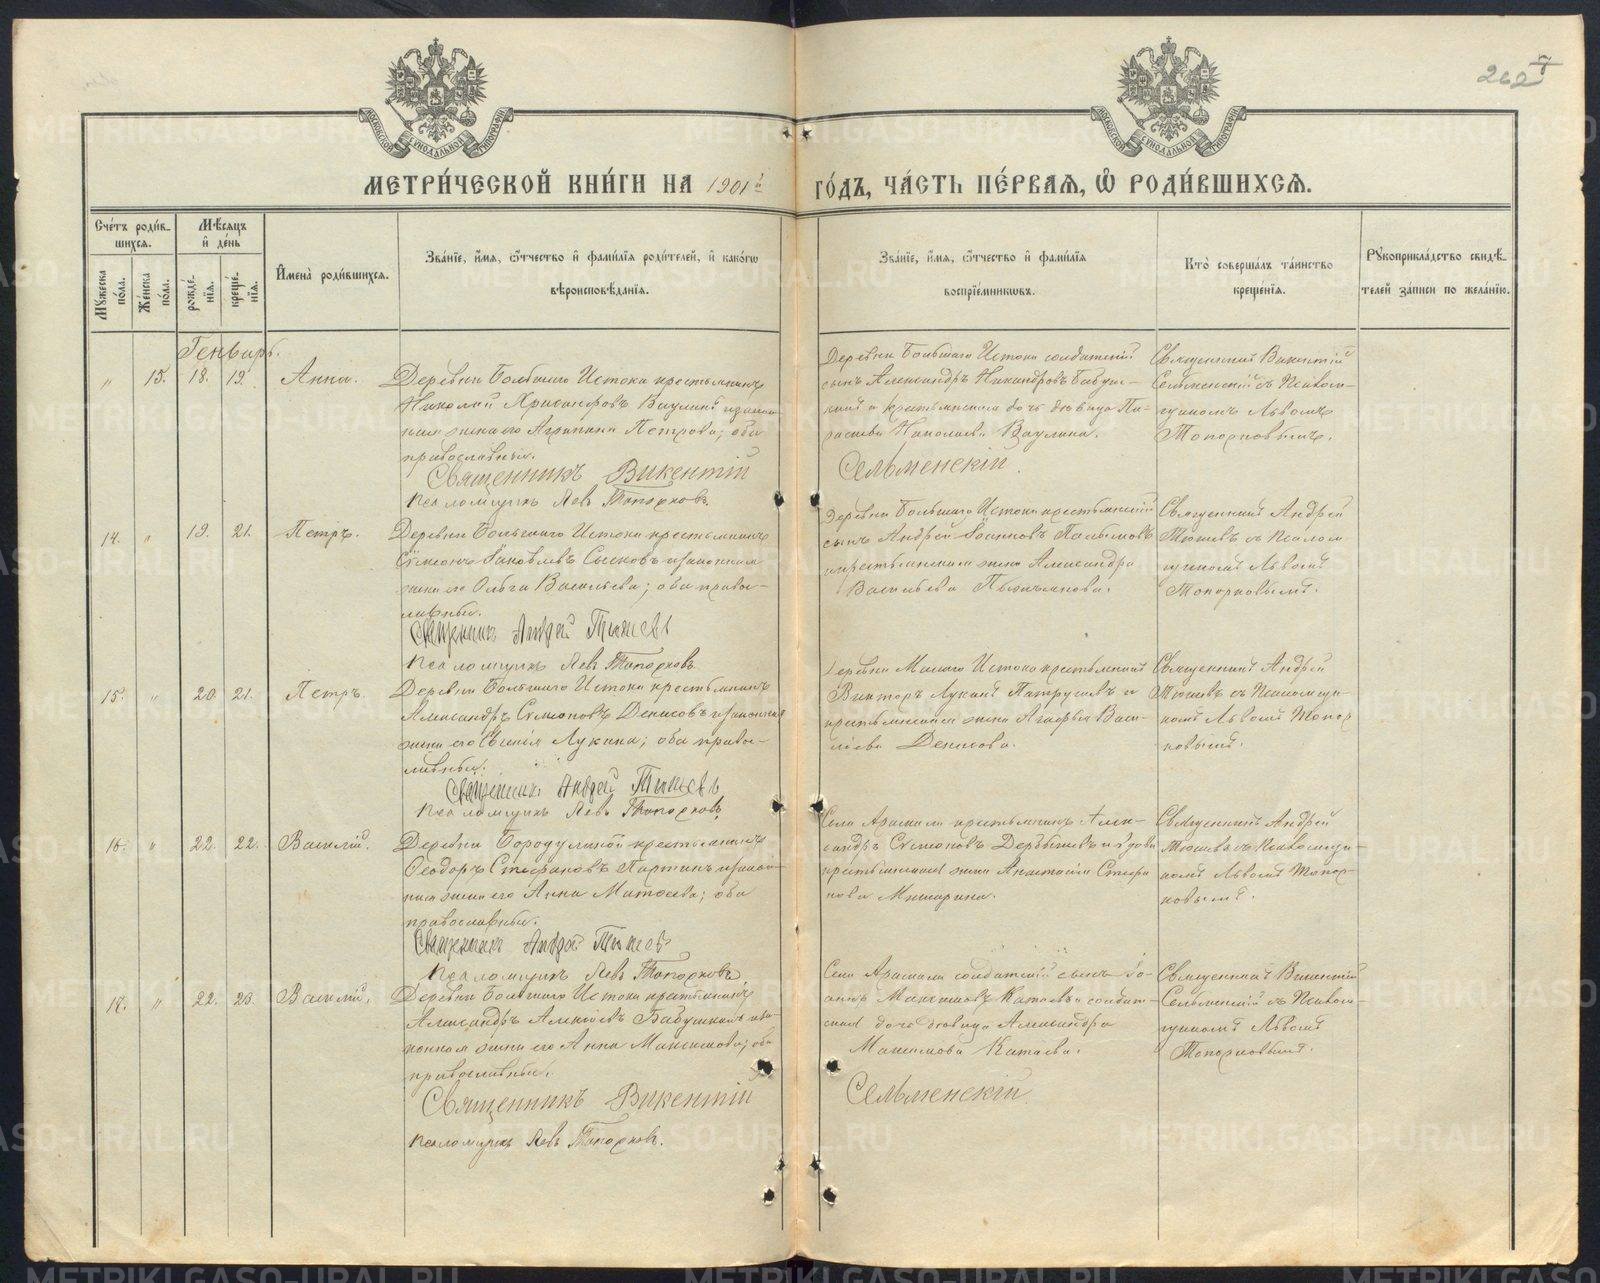 262
7
МОСКОВСКОЙ СѴНОДАЛЬНОЙ ТИПОГРАФІИ
МОСКОВСКОЙ СѴНОДАЛЬНОЙ ТИПОГРАФІИ
МЕТРИ́ЧЕСКОЙ КНИ́ГИ НА 1901й ГО́ДЪ, ЧА́СТЬ ПЕ́РВАЯ, Ѿ РОДИ́ВШИХСЯ.
Сче́тъ роди́в-
шихся.
Мѣ́сяцъ
и҆ де́нь
Мꙋжеска по́ла.
Же́нска пола.
рожде́-нїя.
креще́-нїя.
И҆мена̀ роди́вшихся.
Зва́нїе, и҆́мя, ѻ҆́тчество и҆ фами́лїя роди́телей, и҆ како́гѡ
вѣроисповѣ́данїя.
Зва́нїе, и҆́мя, ѻ҆́тчество и҆ фами́лїя
воспрїе́мникѡвъ.
Кто̀ соверша́лъ та́инство
креще́нїя.
Рꙋкоприкла́дство свидѣ́-
телей за́писи по жела́нїю.
Генварь.
" 15. 18. 19. Анна.
Деревни Большаго Истока крестьянинъ
Николай Хрисанфовъ Ваулинъ и закон-
ная жена его Агрипина Петрова; оба
православные.
Священникъ Викентій Сельменскій.
Псаломщикъ Левъ Топорковъ.
Деревни Большаго Истока солдатскій
сынъ Александръ Никандровъ Бабуш-
кинъ и крестьянская дочь девица Па-
раскева Николаева Ваулина.
Священникъ Викентій
Сельменскій съ Псалом-
щикомъ Львомъ
Топорковымъ.
14. " 19. 21. Петръ.
Деревни Большаго Истока крестьянинъ
Сѵмеонъ Іаковлевъ Сысковъ и законная
жена его Ольга Васильева; оба право-
славные.
Священникъ Андрей Тюшевъ
Псаломщикъ Левъ Топорковъ
Деревни Большаго Истока крестьянскій
сынъ Андрей
крестьянская жена Александра
Васильева
Священникъ Андрей
Тюшевъ съ Псалом
щикомъ Львомъ
Топорковымъ.
15. " 20 21. Петръ.
Деревни Большаго Истока крестьянинъ
Александръ Сѵмеоновъ Денисовъ и законная
жена его Евгенія Лукина; оба право-
славные.
Священникъ Андрей Тюшевъ
Псаломщикъ Левъ Топорковъ.
Деревни Малаго Истока крестьянинъ
Викторъ Лукинъ Патрушевъ и
крестьянская жена Агафья Васи-
льева Денисова.
Священникъ Андрей
Тюшевъ съ Псаломщи-
комъ Львомъ Топор
ковымъ.
16. " 22. 22. Василій.
Деревни Бородулиной крестьянинъ
Ѳеодоръ Стефановъ Партинъ и закон-
ная жена его Анна Матѳеева; оба
православные.
Священникъ Андрей Тюшевъ
Псаломщикъ Левъ Топорковъ
Села Арамили крестьянинъ Алек-
сандръ Сѵмеоновъ Дербышевъ и вдова
крестьянская жена Анастасія Стефа
нова Мишарина.
Священникъ Андрей
Тюшевъ съ Псаломщи-
комъ Львомъ Топор-
ковымъ.
17. " 22. 23. Василій.
Деревни Большаго Истока крестьянинъ
Александръ Алексѣевъ Бабушкинъ и за-
конная жена его Анна Максимова; оба
православные.
Священникъ Викентій Сельменскій
Псаломщикъ Левъ Топорковъ.
Села Арамили солдатскій сынъ Іо-
аннъ Максимовъ Катаевъ и солдат-
ская дочь девица Александра
Максимова Катаева.
Священникъ Викентій
Сельменскій съ Псалом-
щикомъ Львомъ
Топорковымъ.
METRIKI.GASO-URAL.RU